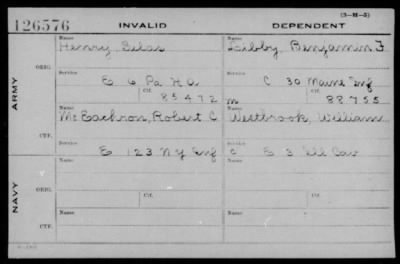 (3-H-5)
126576 INVALID DEPENDENT
Name Name
Henry Silas Libby, Benjamin F
ORIG.
Service Service
E 6 Pa H A C 30 Maine Inf
Ctf. Ctf.
85472 m 88755
ARMY
Name Name
McEachron, Robert C Westbrook, William
CTF.
Service Service
E 123 N Y Inf c E 3 Ill Cav
Name Name
ORIG.
Service Service
Ctf. Ctf.
NAVY
Name Name
CTF.
Service Service